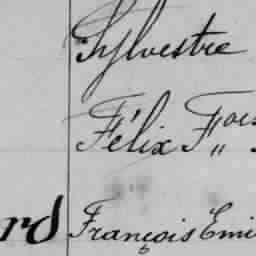 Sylvestre
Félix F,,ois
rd François Emi